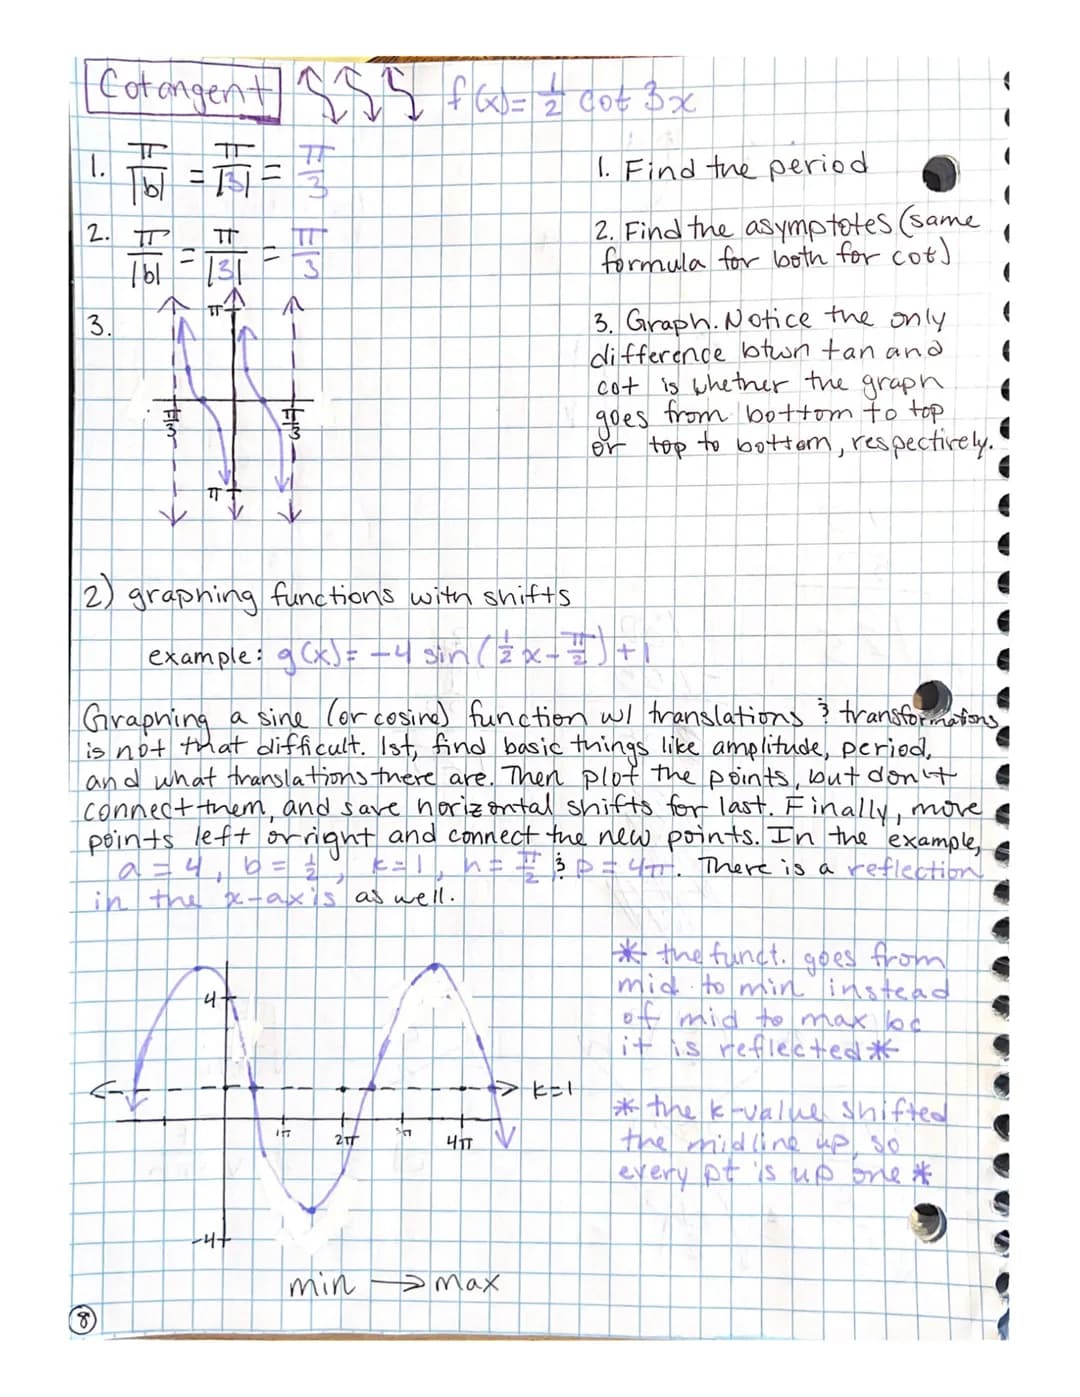 Cotangent f(x)= 1/2 cot 3x
1. π/|b| = π/|3| = π/3
1. Find the period
2. π/|b| = π/|3| = π/3
2. Find the asymptotes (same
formula for both for cot)
3.
π
-π/3
π/3
π
3. Graph. Notice the only
difference btwn tan and
cot is whether the graph
goes from bottom to top
or top to bottom, respectively.
2) graphing functions with shifts
example: g(x)= -4 sin(1/2 x - π/2)+1
Graphing a sine (or cosine) function w/ translations & transformations
is not that difficult. 1st, find basic things like amplitude, period,
and what translations there are. Then plot the points, but don't
connect them, and save horizontal shifts for last. Finally, move
points left or right and connect the new points. In the example,
a=4, b=1/2, k=1, h=π/2 & p=4π. There is a reflection
in the x-axis as well.
* the funct. goes from
mid to min instead
of mid to max bc
it is reflected *
* the k-value shifted
the midline up, so
every pt is up one *
4
k=1
π
2π
4π
-4
min → max
8